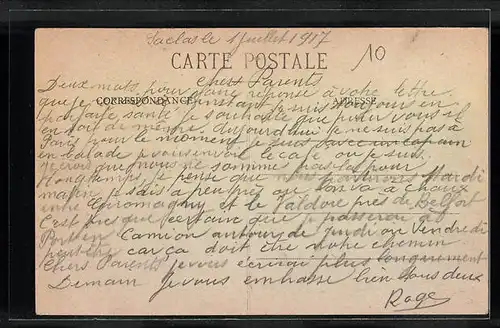 Saclas le 1 Juillet 1917
CARTE POSTALE
10
Chers Parents
Deux mots pour faire réponse à votre lettre
CORRESPONDANCE
ADRESSE
que je instant je suis toujours en
parfaite santé je souhaite que pour vous il
en soit de même. Aujourd'hui je ne suis pas à
Paris pour le moment je suis avec un copain
en balade je vous envoi le café ou je suis.
je crois que nous ne somme pas là pour
longtemps, je pense que nous partirons Mardi
matin je sais a peu près ou l'on va à
entre Giromagny et le Valdoie près de Belfort
C'est presque certain que je passerai à
en Camion autour de Jeudi ou Vendredi
peut être car ça doit être notre chemin
Chers Parents je vous écrirai plus longuement
Demain je vous embrasse bien tous deux
Roge